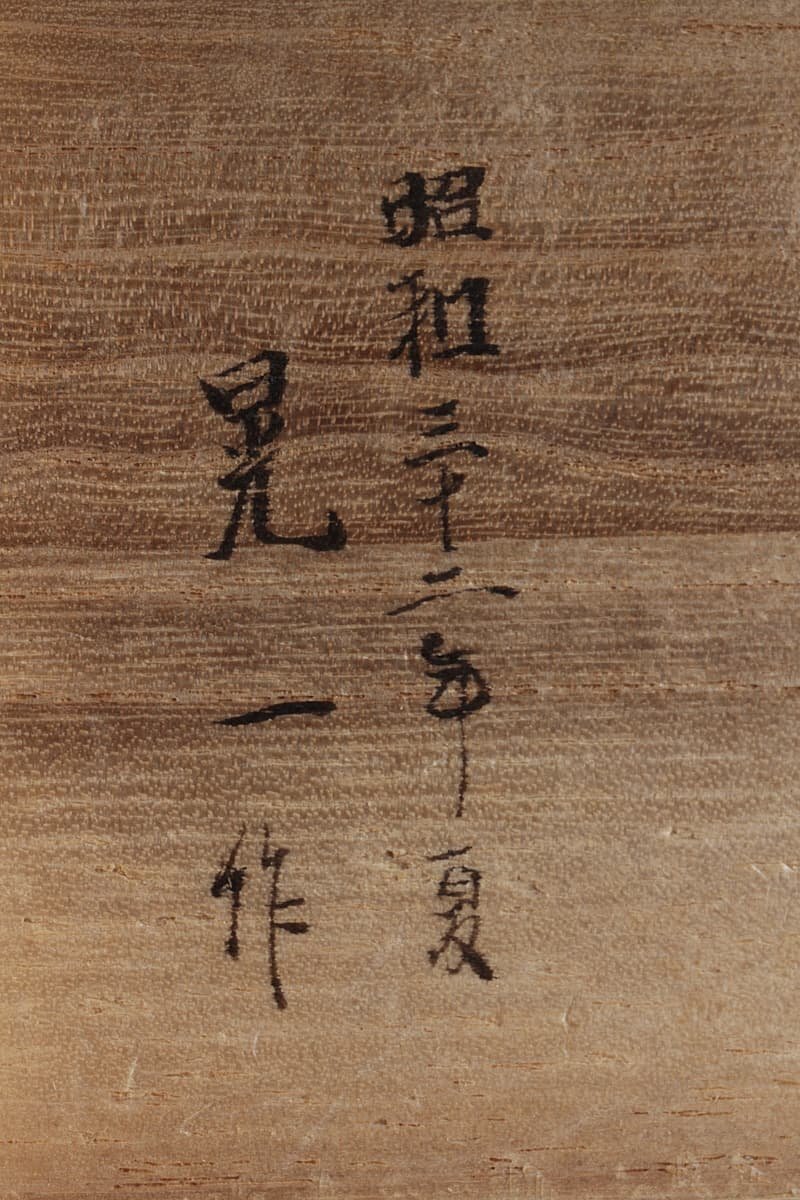 昭和三十二年夏
晃一作